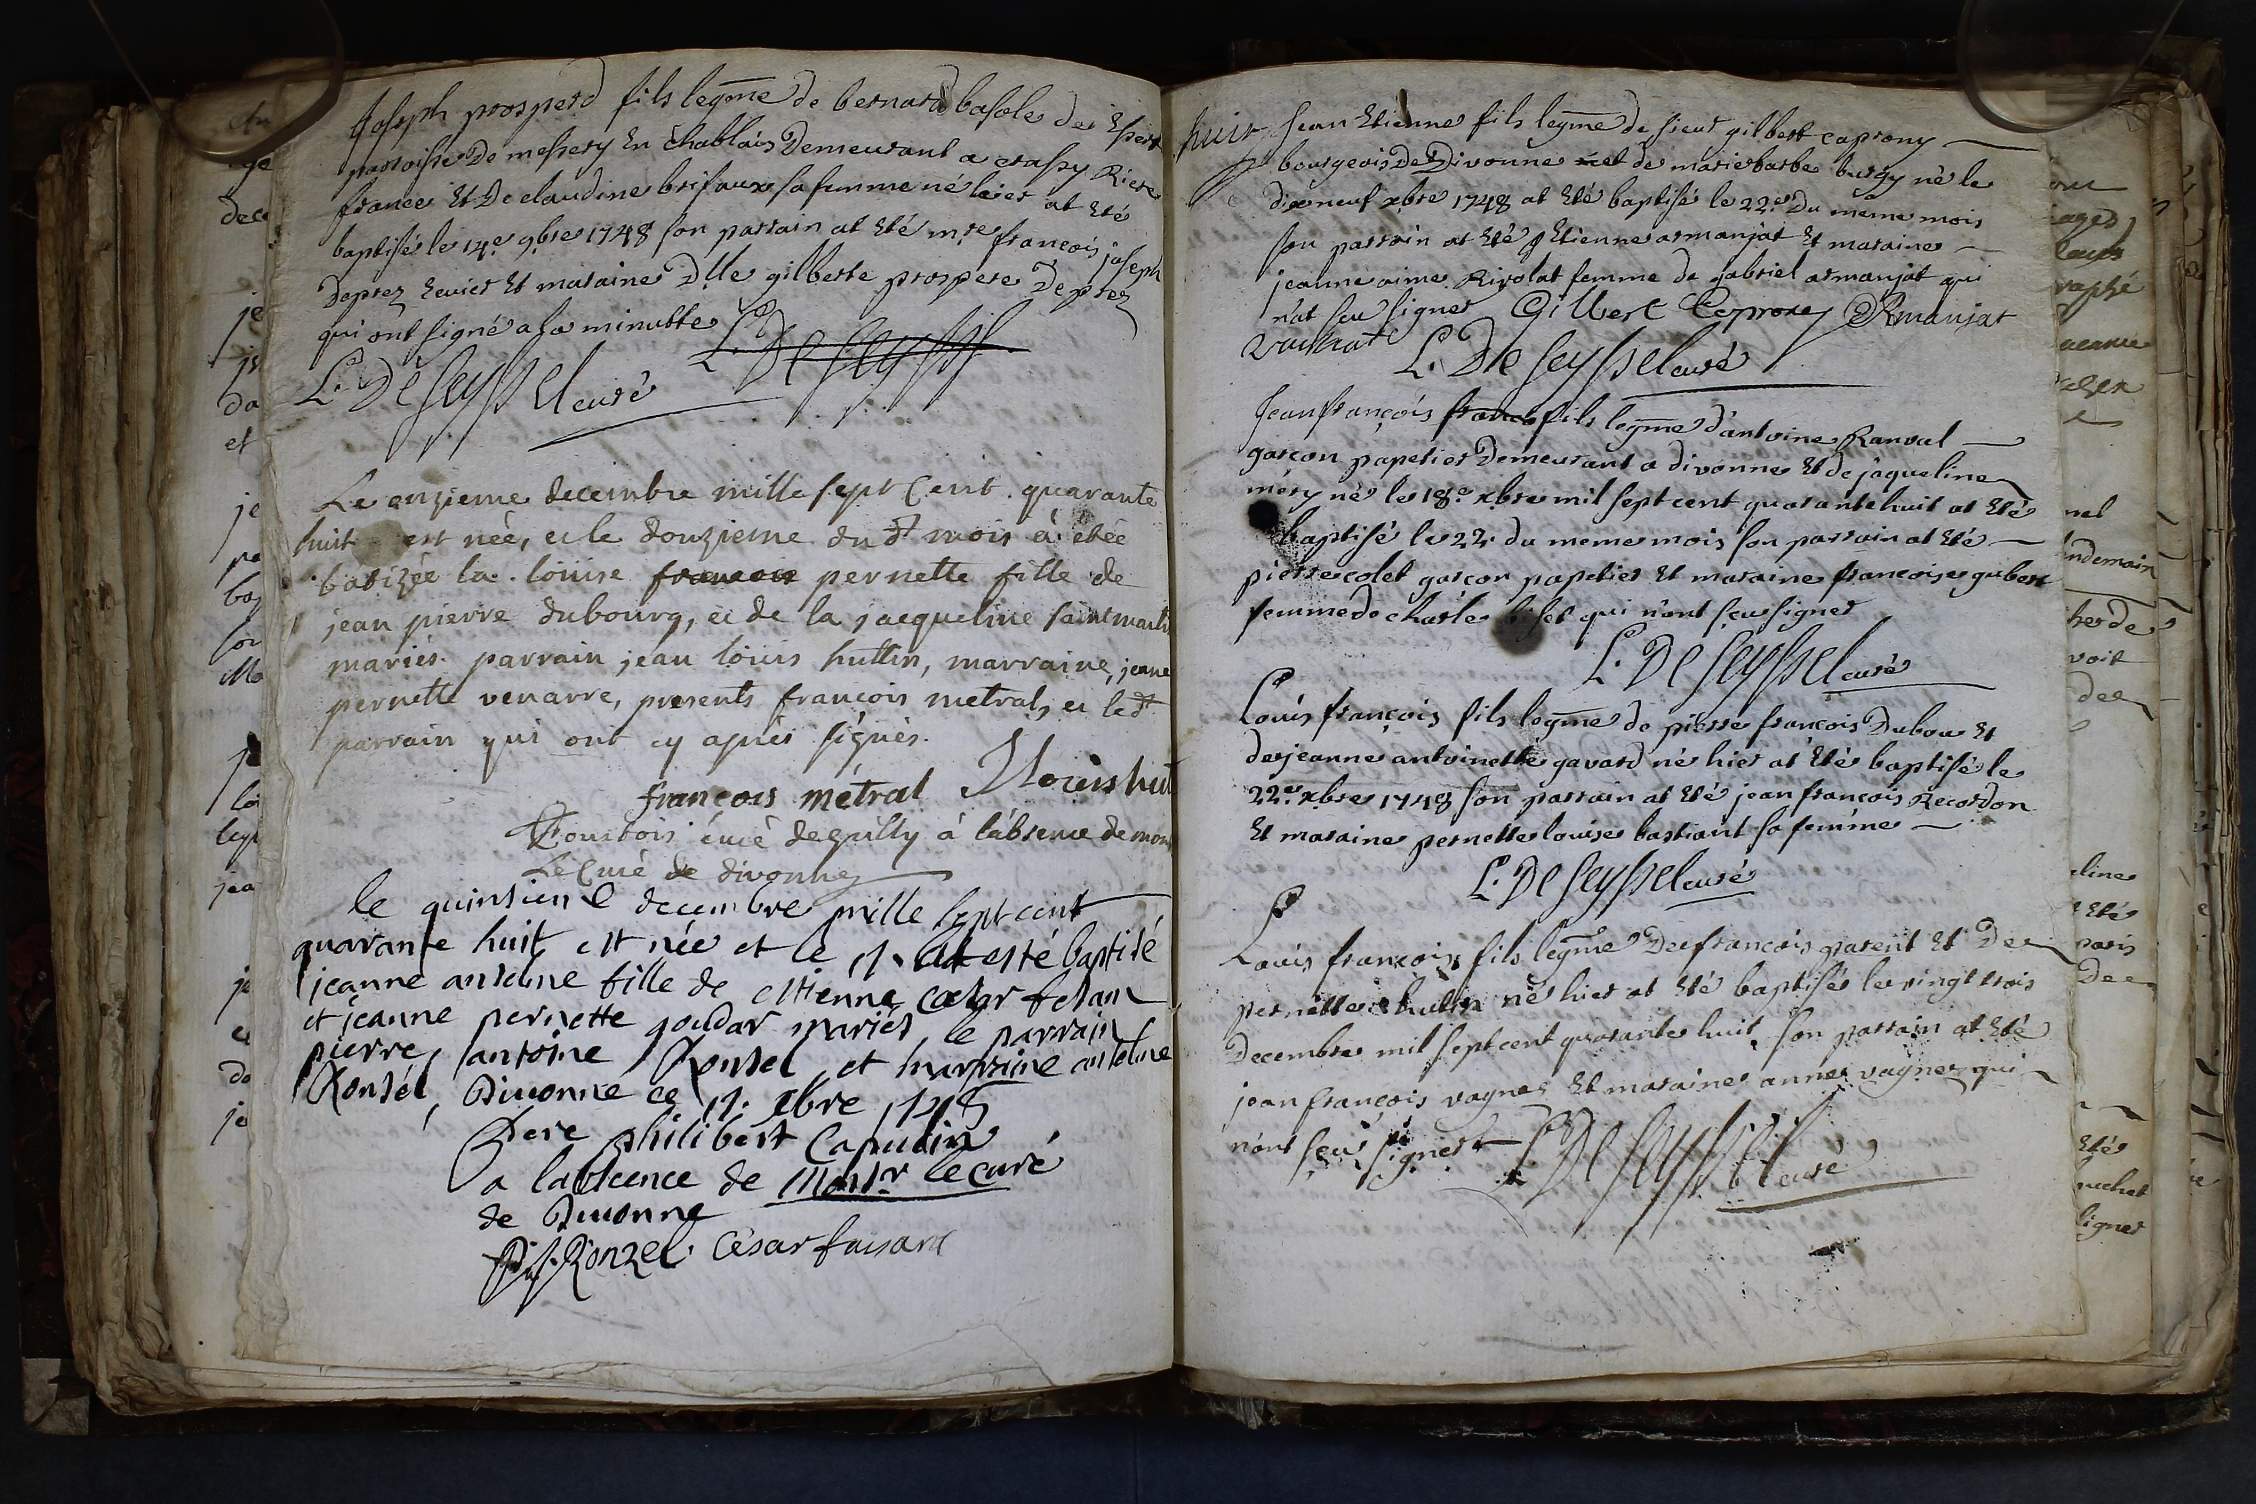 Joseph prosperd fils legme de bernard basole des
parroisse De messery En Chablais Demeurant a crassy Riere
france Et De claudine brifaux sa femme né hier at Eté
baptisé le 14e 9bre 1748 son parrain at Eté mre françois joseph
deprez Ecuier Et maraine Dlle gilberte prospere Deprez
qui ont signé a la minutte L. De Seyssel
L. De Seyssel curé
Le onzieme decembre mille sept Cent quarante
huit est née, et le douzieme du dt mois à etée
batizée la louise francoise pernette fille de
jean pierre dubourg, et de la jacqueline saint martin
mariés. parrain jean loüis huttin, marraine, jeane
pernette venarre, presents françois metral, et ledt
parrain qui ont cy après signès.
françois métral J louis hut
curé de gilly à l'absence de mon
Le Curé de divonne
le quinsieme decembre mille sept cent
quarante huit est née et le 17 at esté baptisé
jeanne antoine fille de ettienne cesar fesan
et jeanne pernette goudar mariés le parrain
pierre antoine Ronsel et marraine antoine
Ronsel, Divonne ce 17. xbre 1748
Pere Philibert Capucin
a labscence de Monsr le curé
de Divonne
P. a. Ronzel César faisant
huit Jean Etienne fils legme de sieur gilbert caprony
bourgeois De Divonne et de marie barbe burgy né le
dixneuf xbre 1748 at Eté baptisé le 22e Du même mois
son parrain at Eté Etienne armanjat Et maraine
jeanne aime Rivolat femme de gabriel armanjat qui
n'at sçu signer Gilbert Caprony Armanjat
L. De Seyssel curé
Jean françois franc fils legme d'antoine Ranval
garçon papetier Demeurant a divonne Et de jaqueline
mery né le 18e xbre mil sept cent quarante huit at Eté
baptisé le 22. du meme mois son parrain at Eté
pierre colet garçon papetier Et maraine françoise gubert
femme de charle biset qui n'ont sçeu signer
L. De Seyssel curé
Loüis françois fils legme de pierre françois Dubou Et
de jeanne antoinette gavard né hier at Eté baptisé le
22e xbre 1748 son parrain at Eté jean françois Recordon
Et maraine pernette louise bastiant sa femme
L. De Seyssel curé
Loüis françois fils legme De françois parent Et De
pernette hutin né hier at Eté baptisé le vingt trois
Decembre mil sept cent quarante huit son parrain at Eté
jean françois vagnez Et maraine anne vagnez qui
n'ont sçeu signer
L. De Seyssel curé